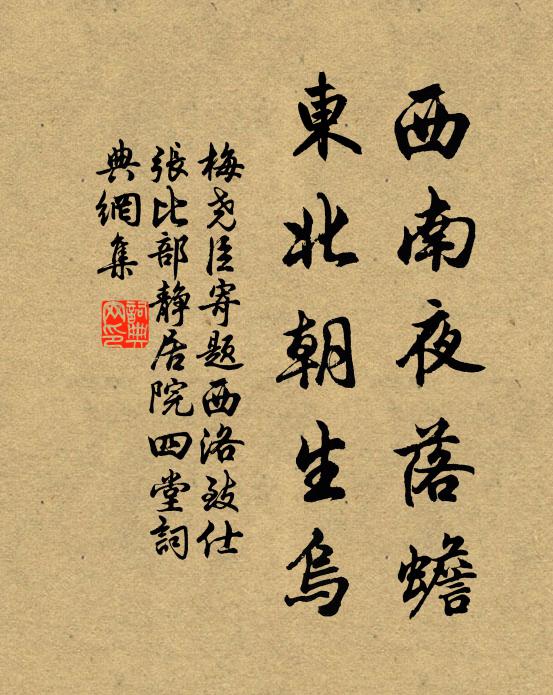 西南夜落蟾
東北朝生烏
梅尧臣寄題西洛致仕
張比部静居院四堂詞
典網集
詞典網印